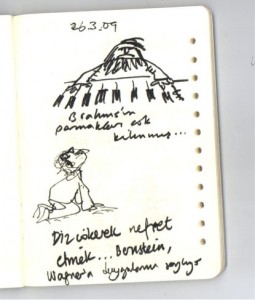 26.3.09
Brahms'ın
parmakları aşk
Diz çökerek nefret
etmek... Bernstein,
Wagner'in duygularını